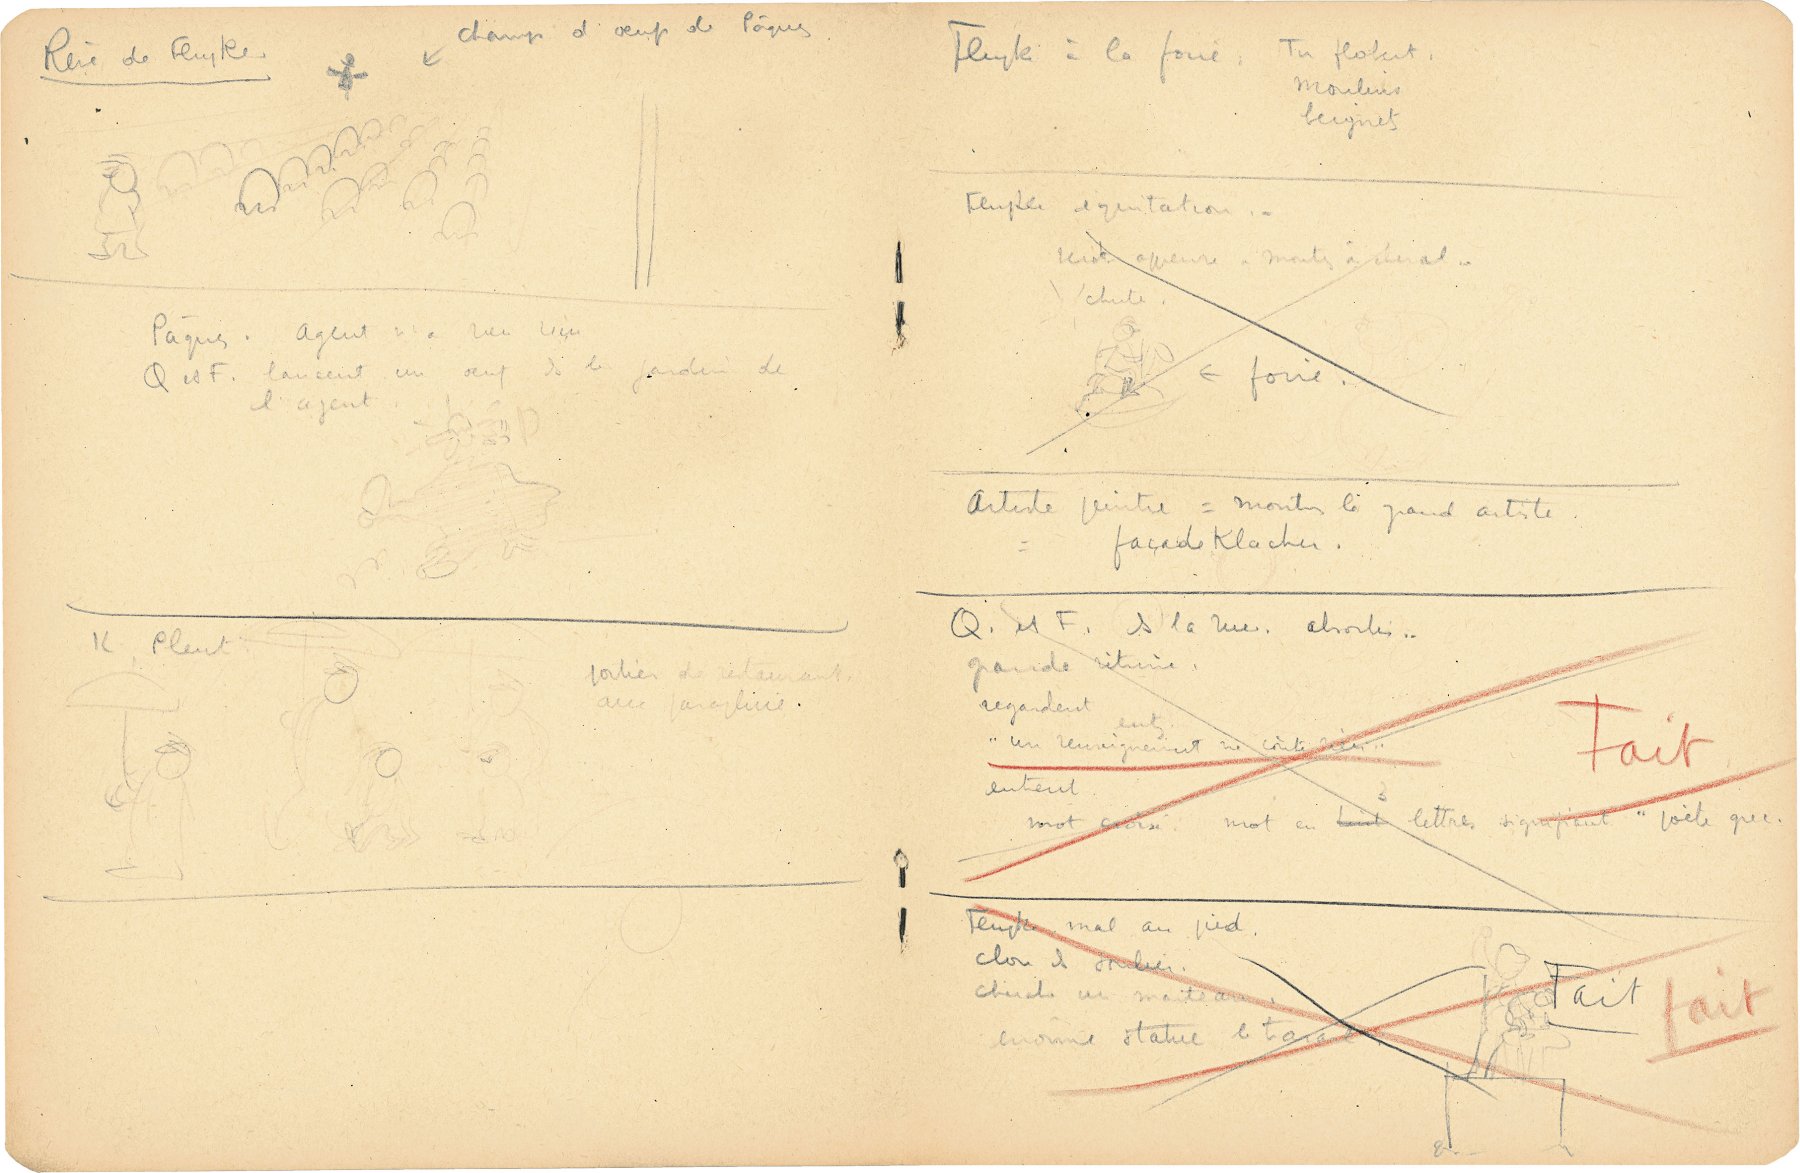 Rêve de Flupke.
champ d'oeufs de Pâques
Pâques. Agent n'a rien reçu
Q et F. lancent un oeuf ds le jardin de
l'agent
K. Pleut
portier de restaurant
avec parapluie.
Flupke à la foire. Tir flobert.
Moulins
beignets
Flupke équitation..
apprend à monter à cheval..
chute.
← foire.
Artiste peintre = montrer le grand artiste.
= façade Klacher.
Q. et F. ds la rue. absorbés..
grande vitrine.
regardent
"un renseignement ne coûte rien"
entrent.
mot croisé. mot en 3 lettres signifiant "poète grec.
Fait
Flupke mal au pied.
clou ds soulier.
cherche un marteau.
énorme statue
Fait
fait